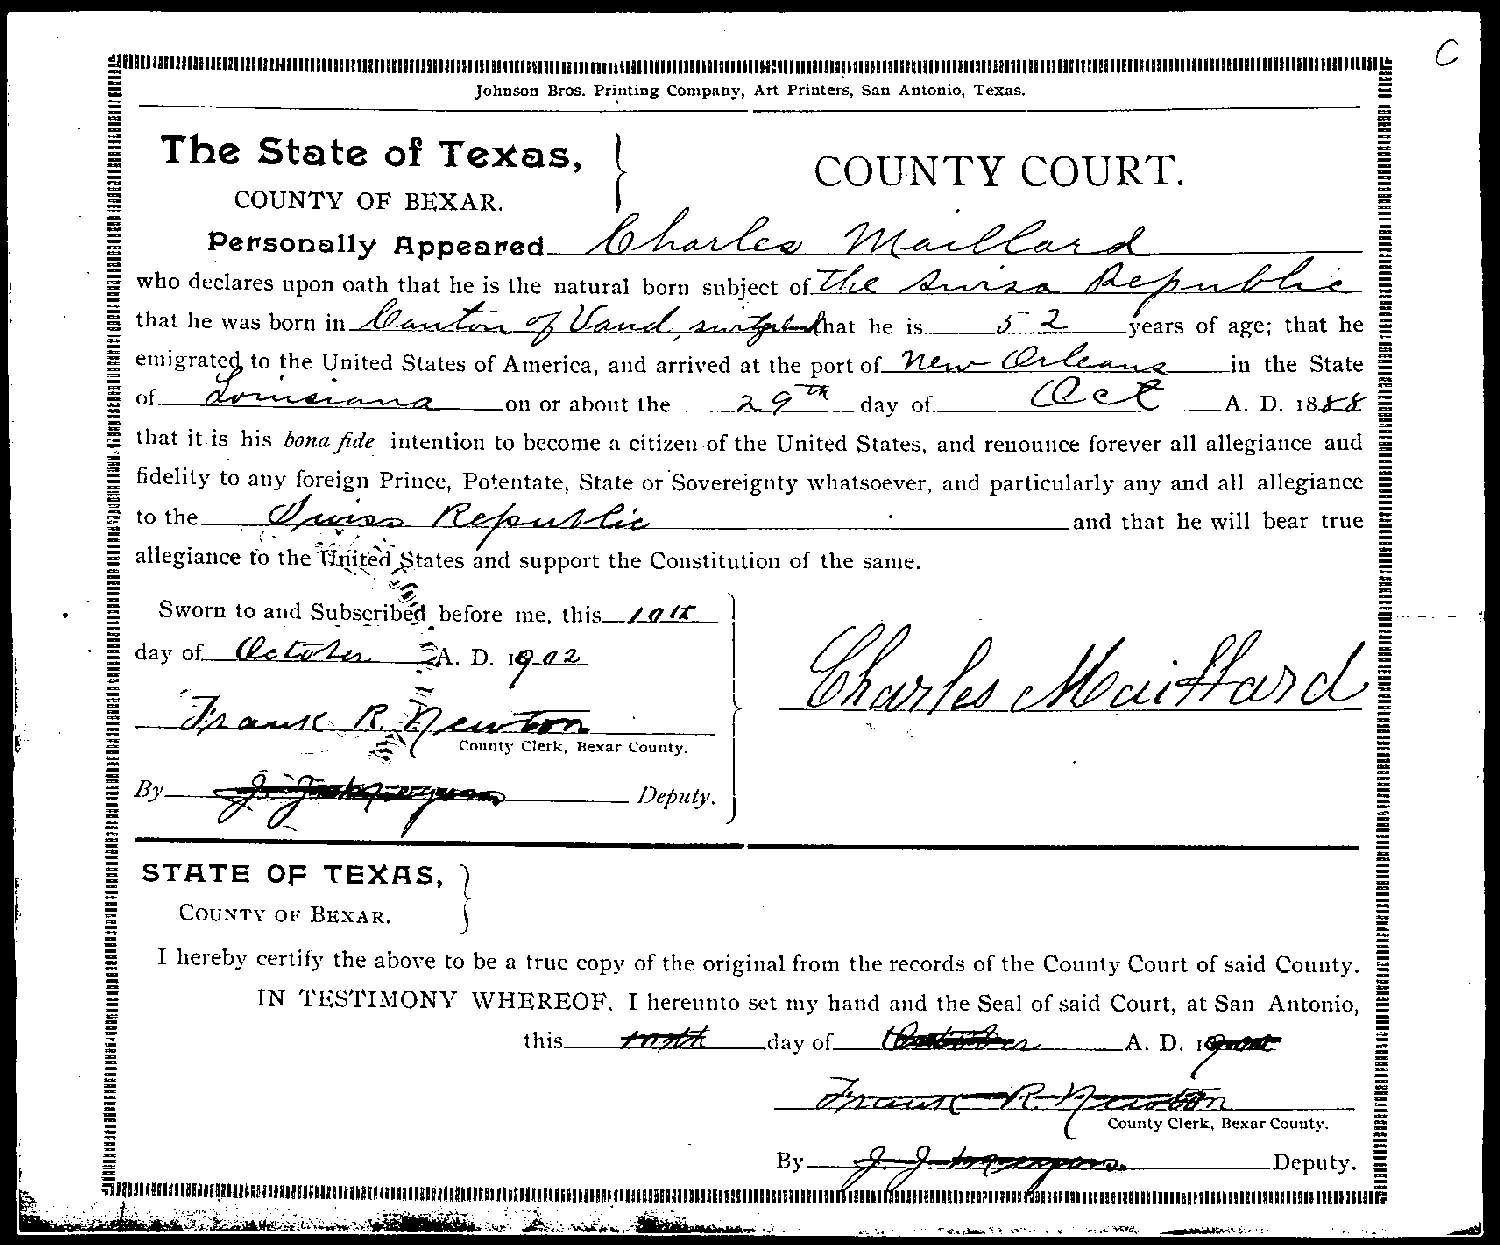 C
Johnson Bros. Printing Company, Art Printers, San Antonio, Texas.
The State of Texas,
COUNTY OF BEXAR.
COUNTY COURT.
Personally Appeared Charles Maillard
who declares upon oath that he is the natural born subject of The Swiss Republic
that he was born in Canton of Vaud, that he is 52 years of age; that he
emigrated to the United States of America, and arrived at the port of New Orleans in the State
of Louisiana on or about the 29th day of Oct A. D. 1888
that it is his bona fide intention to become a citizen of the United States, and renounce forever all allegiance and
fidelity to any foreign Prince, Potentate, State or Sovereignty whatsoever, and particularly any and all allegiance
to the Swiss Republic and that he will bear true
allegiance to the United States and support the Constitution of the same.
Sworn to and Subscribed before me, this 10th
day of October A. D. 1902
Charles Maillard
Frank R. Newton
County Clerk, Bexar County.
By J. J. Deputy.
STATE OF TEXAS,
COUNTY OF BEXAR.
I hereby certify the above to be a true copy of the original from the records of the County Court of said County.
IN TESTIMONY WHEREOF, I hereunto set my hand and the Seal of said Court, at San Antonio,
this day of October A. D. 19
Frank R. Newton
County Clerk, Bexar County.
By J. J. Deputy.